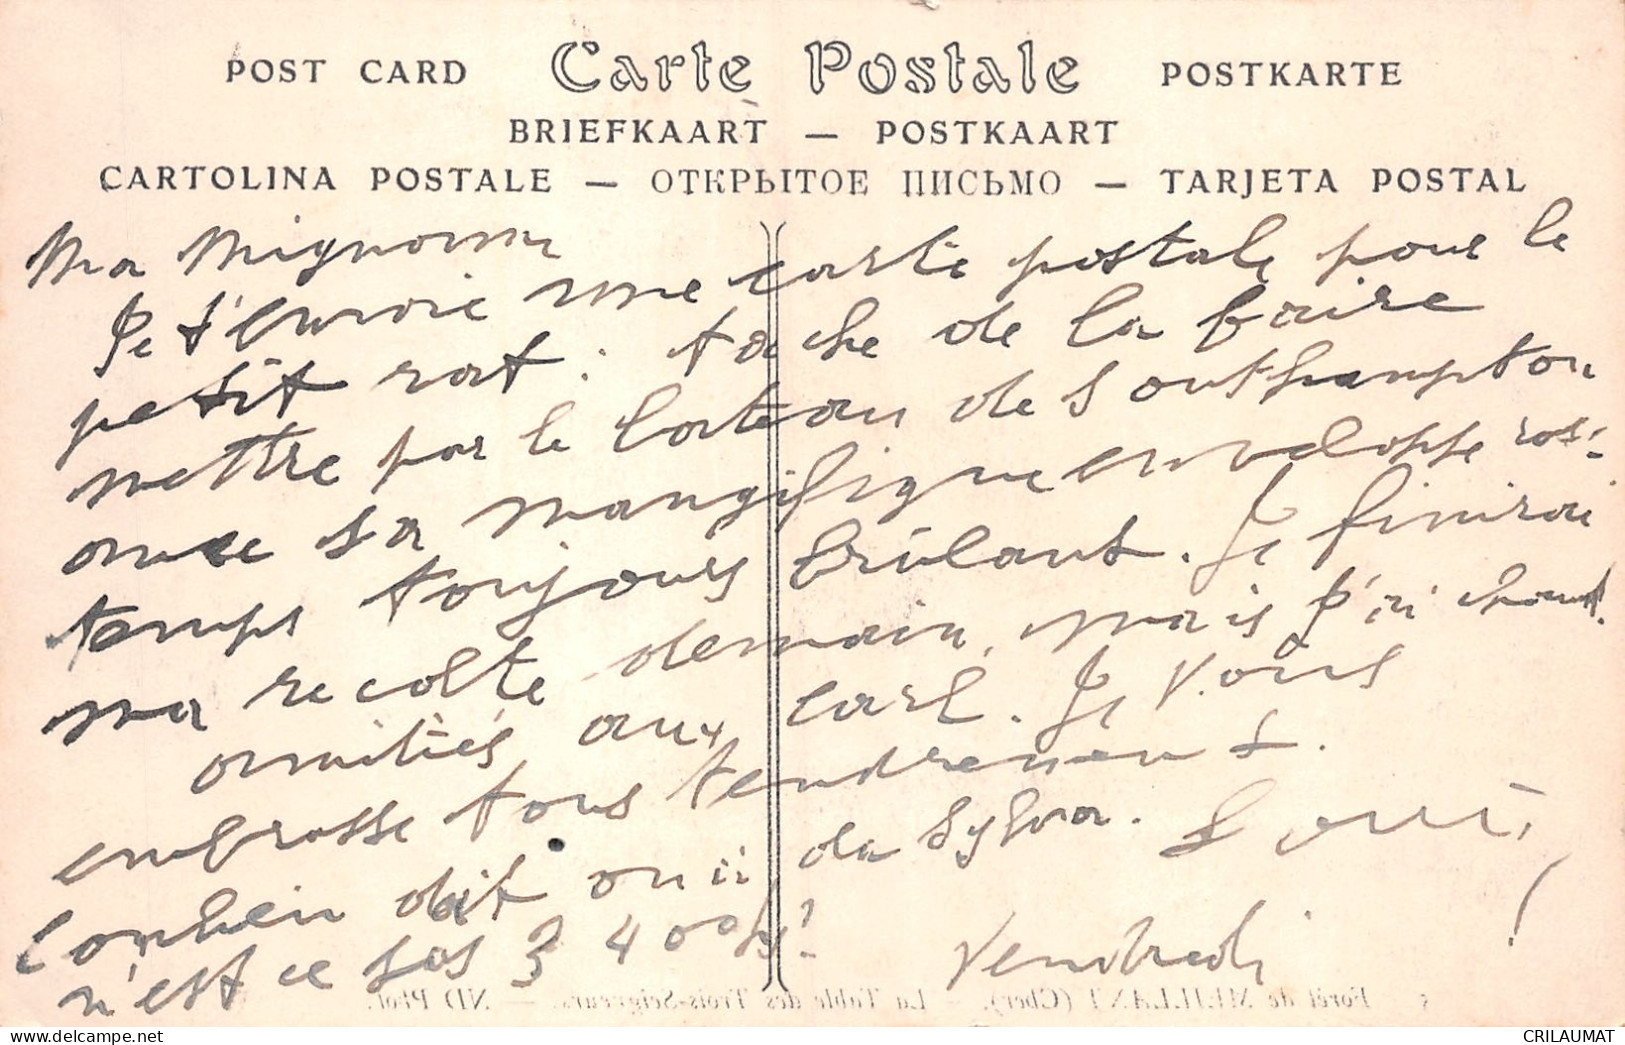 POST CARD Carte Postale POSTKARTE
BRIEFKAART — POSTKAART
CARTOLINA POSTALE — ОТКРЫТОЕ ПИСЬМО — TARJETA POSTAL
Ma Mignonne
Je t'envoie une carte postale pour le
petit rat. tache de la faire
mettre par le bateau de Southampton
sa mangifique enveloppe
temps toujours brûlant. Je finirai
ma recolte demain, mais j'ai chaud.
amitiés aux Carl. Je vous
embrasse tous tendrement.
Combien doit on ii da Sylva. Louis
n'est ce pas 3 400 !
Vendredi
5 Forêt de MEILLANT (Cher). — La Table des Trois-Seigneurs. — ND Phot.
CRILAUMAT